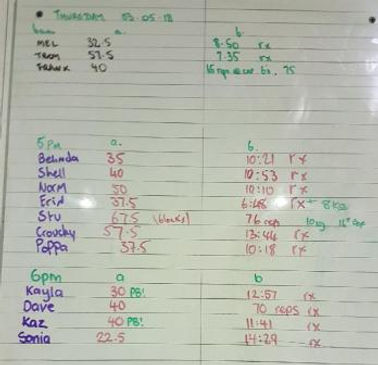 THURSDAY 03.05.18
a. b.
MEL 32.5 8.50 rx
57.5 7.35 rx
FRANK 40 75
5pm a. b.
Belinda 35 10:21 rx
Shell 40 10:53 rx
Norm 50 10:10 rx
Erin 37.5 6:48 rx + 8kg
Stu 67.5 (blocks) 76 reps 10kg
Crouchy 57.5 13:44 rx
Poppa 37.5 10:18 rx
6pm a b
Kayla 30 PB! 12:57 rx
Dave 40 70 reps rx
Kaz 40 PB! 11:41 rx
Sonia 22.5 14:29 rx